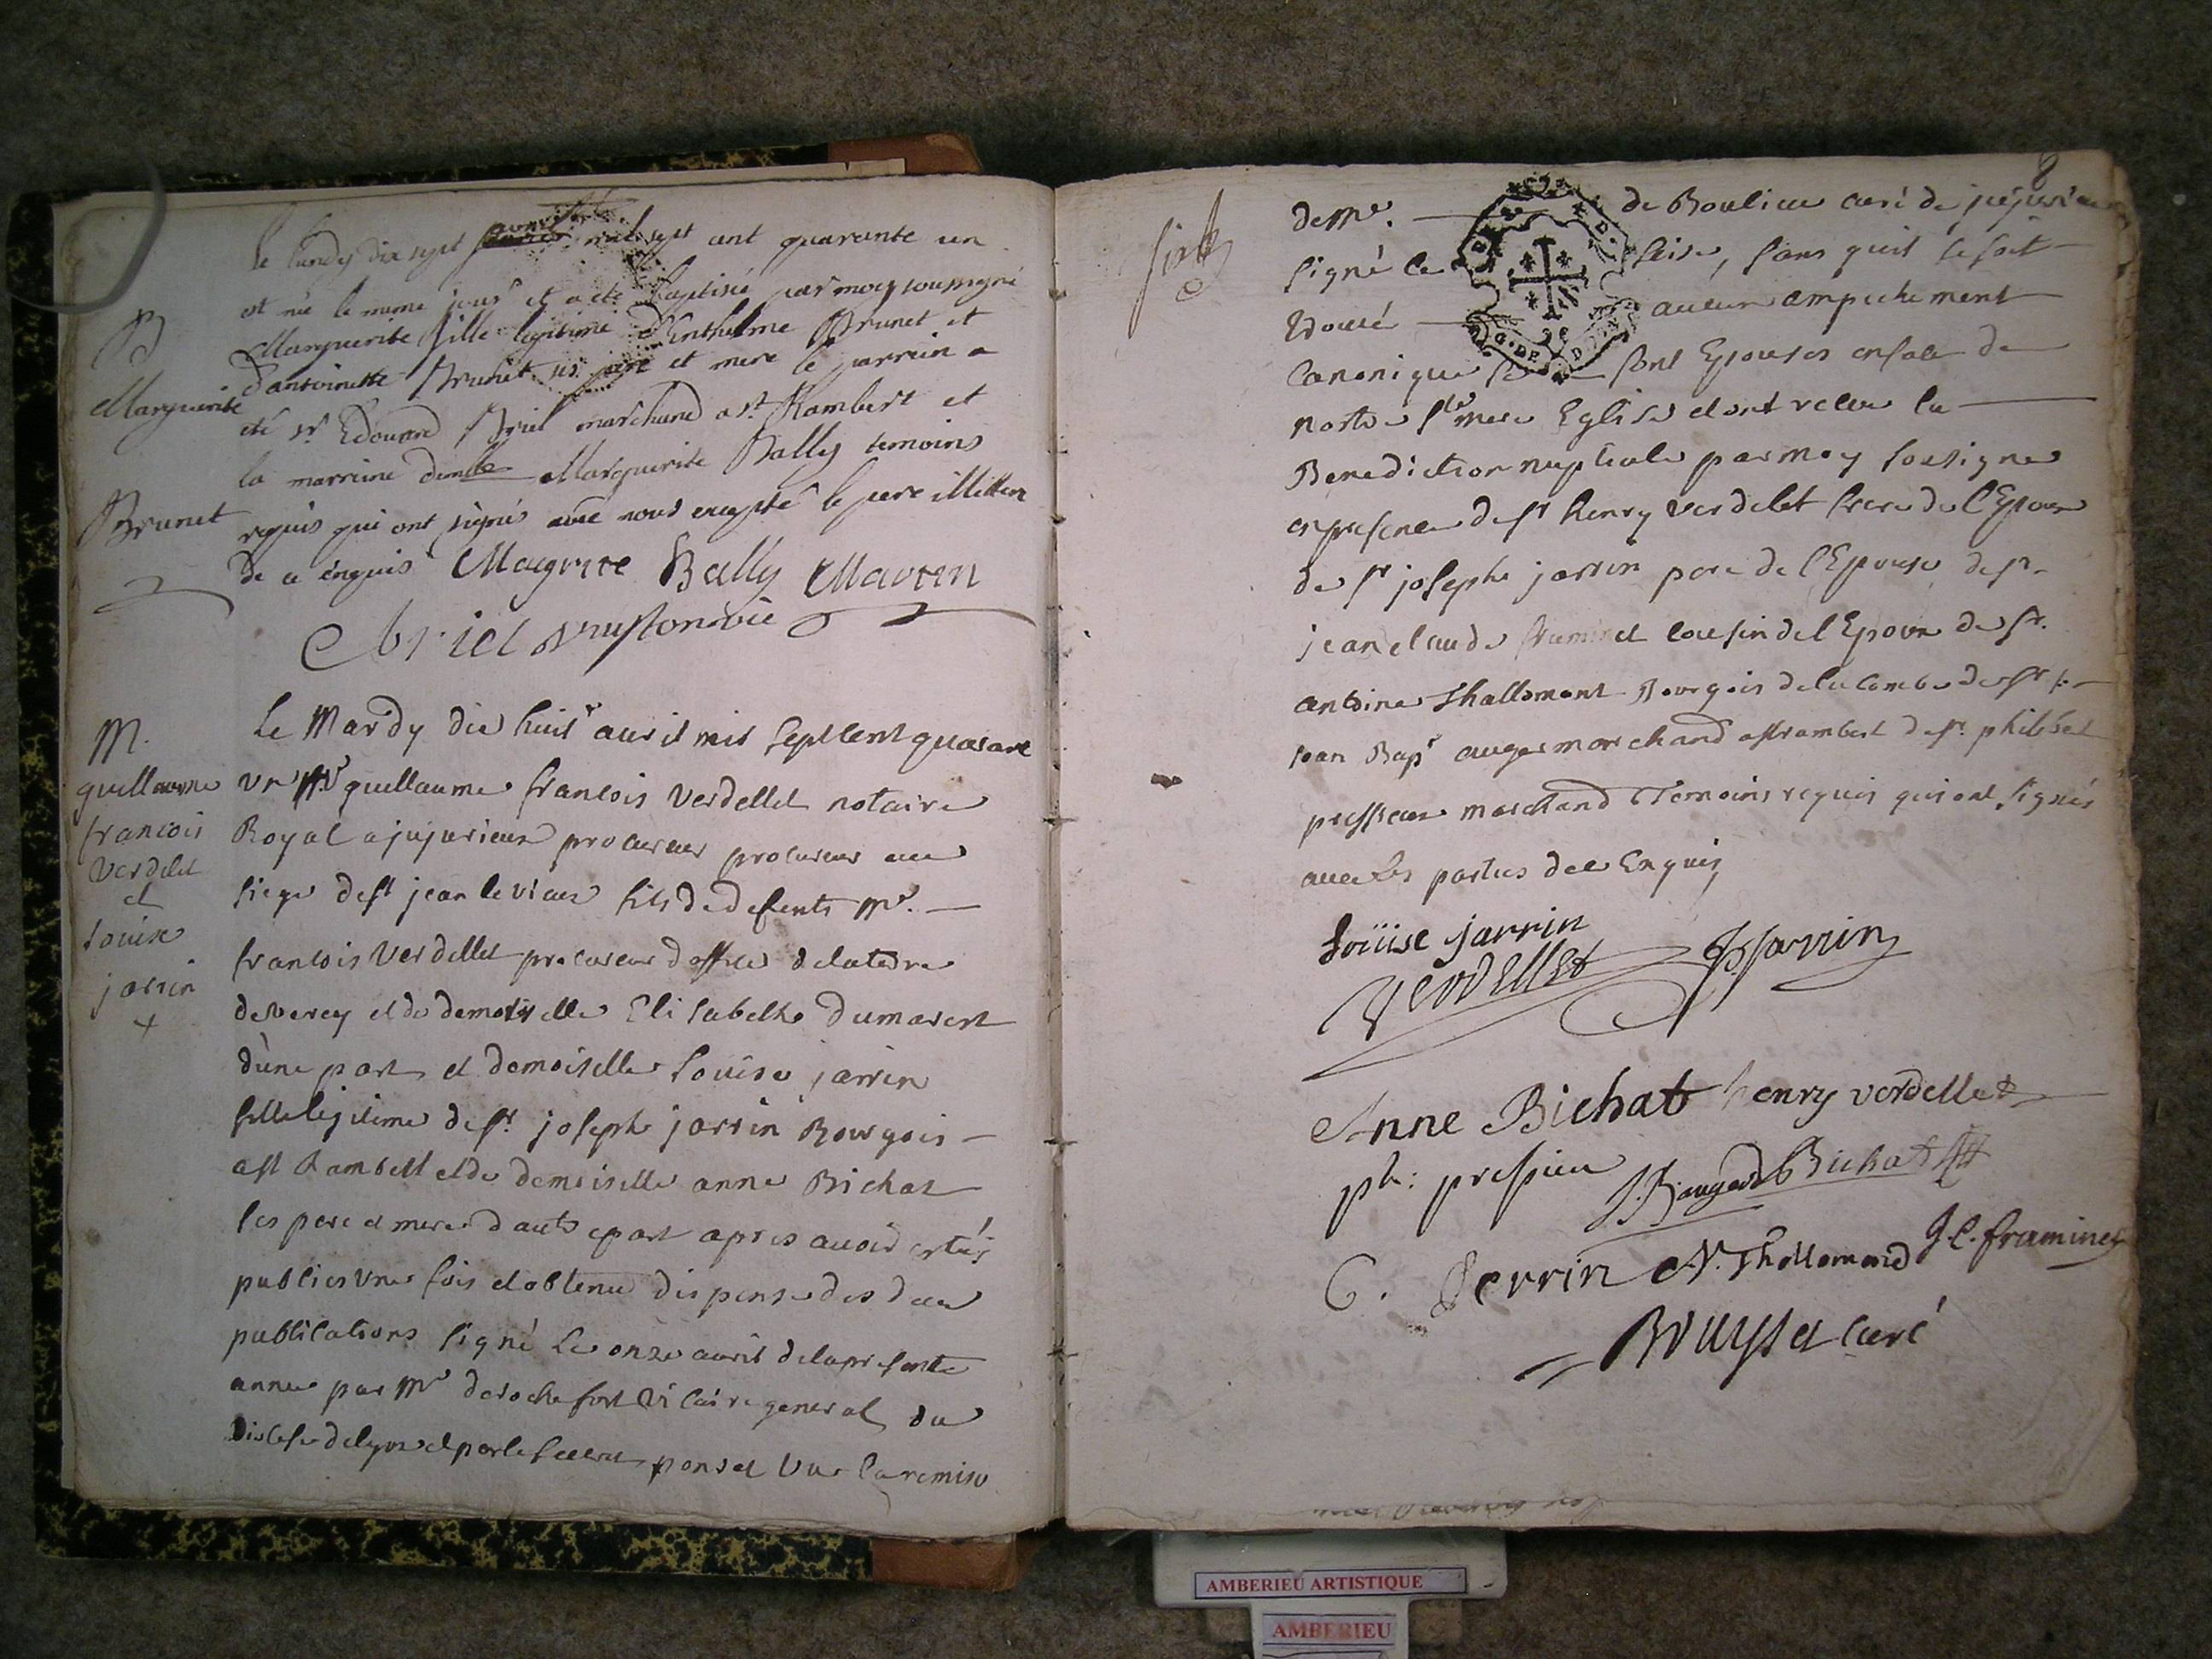 B
Marguerite
Brunet
Le lundy dix sept avril mil sept cent quarante un
est née le meme jour et a été baptisée par moy soussigné
Marguerite fille legitime d'Anthelme Brunet et
d'antoinette Brunet ses pere et mere le parrein a
eté sr. Edouard Briel marchand a st. Rambert et
la marreine dem.lle Marguerite Bally temoins
requis qui ont signés avec nous excepté le pere illitteré
de ce enquis Magrite Bally Martin
Briel
M.
guillaume
francois
Verdelet
et
Louise
jarrin
+
Le Mardy dix huit avril mil sept cent quarante
un Mr guillaume francois Verdellet notaire
Royal a jujurieux procureur procureur au
siege de st jean le vieux fils de defents Mr. —
francois Verdellet procureur doffice de la terre
de varey et de demoiselle Elisabethe dumarest
d'une part et demoiselle Louise jarrin
fille legitime de sr. joseph jarrin Bourgois —
a st Rambert et de demoiselle anne Bichat
ses pere et mere d'autre part apres avoir estés
publies une fois et obtenu dispense des deux
publications signé le onze avril de la presente
annee par Mr de rochefort Vicaire general du
Diocese de lyon et par le secret. ponset vue la remise
8
de Mr. — de Boulieu curé de jujurieux
signé le seise, sans quil se soit
trouvé — aucun ampechement
Canonique se — sont Epouses en face de
nostre ste mere Eglise et ont recu la —
Benediction nuptiale par moy sousigné
en presence de sr henry verdelet frere de l'Epoux
de sr josephe jarrin pere de l'Epouse de sr
jean claude framinet cousin de l'Epoux de sr.
antoine Thallomont Bourgois de la Combe de sr
jean Bapt auger marchand a st rambert de sr. philibert
pressieu marchand Temoins requis qui ont signés
avec les parties de ce Enquis
Loüise jarrin
Verdellet Jarrin
Anne Bichat henry verdellet
ph: prespieu J. B. auger Bichat
C. Perrin A. Thollomond J. C. framinet
Bruyset curé
AMBERIEU ARTISTIQUE
AMBERIEU